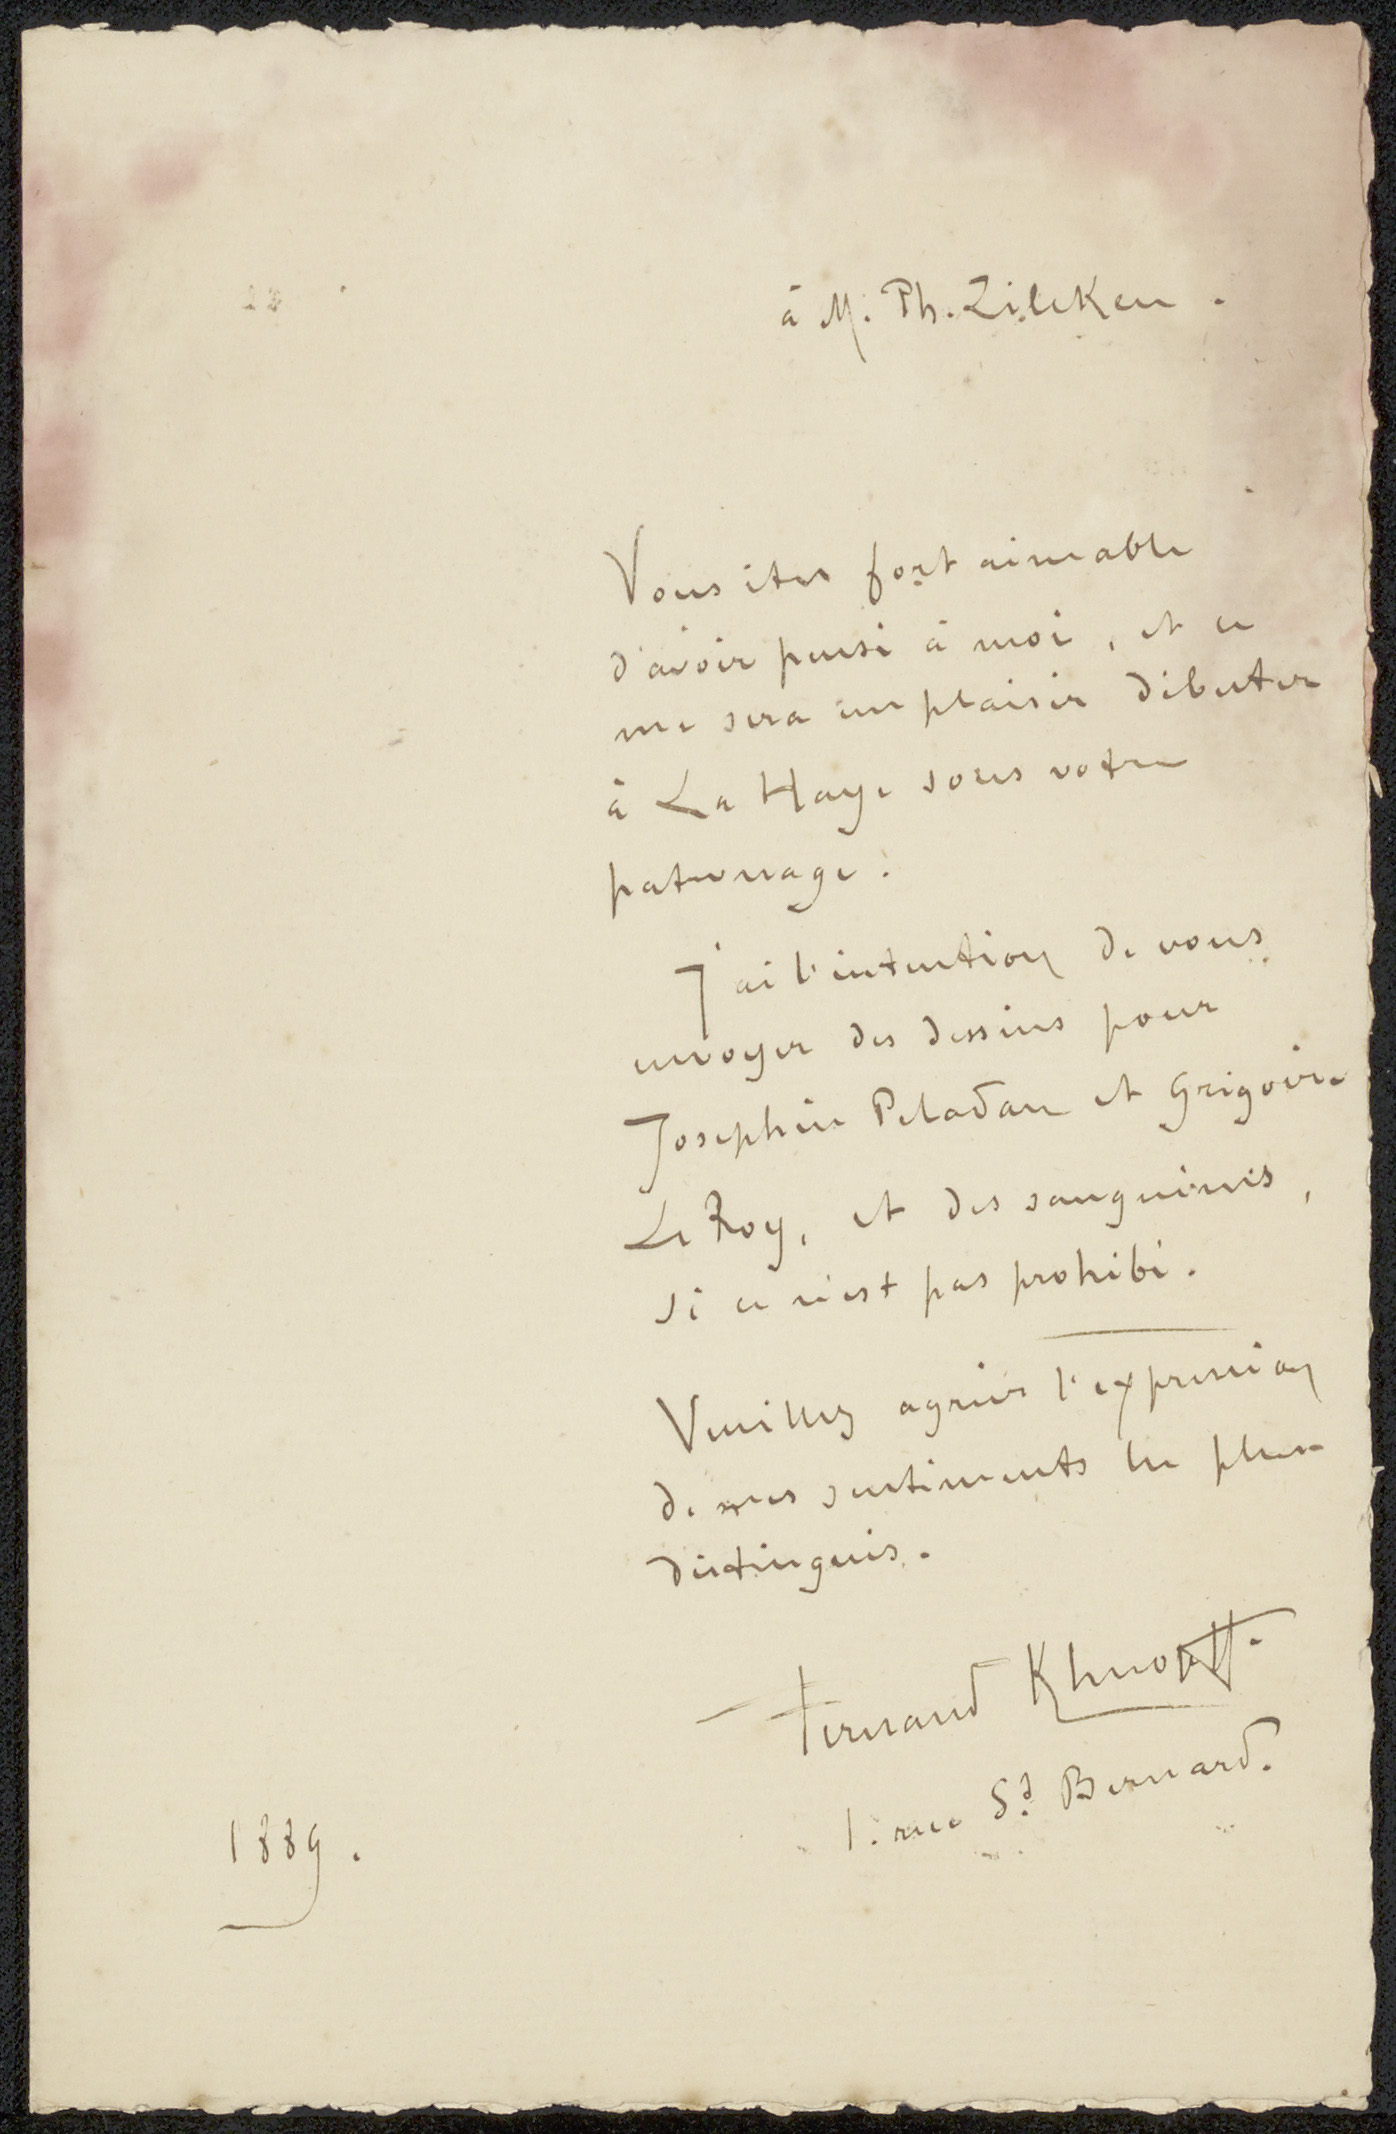 à M. Ph. Zilcken.
Vous êtes fort aimable
d'avoir pensé à moi, et ce
me sera un plaisir débuter
à La Haye sous votre
patronage.
J'ai l'intention de vous
envoyer des dessins pour
Josephin Peladan et Grégoire
Le Roy, et des sanguines,
si ce n'est pas prohibé.
Veuillez agréer l'expression
de mes sentiments les plus
distingués.
Fernand Khnopff.
1. rue St Bernard.
1889.